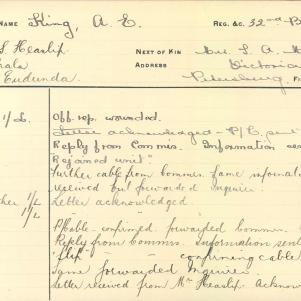 NAME King, A. E. REG. &C. 32nd B
S Heaslip NEXT OF KIN Mrs. L. A.
ADDRESS Victoria
Eudunda Petersburg
1/L. Off. rep. wounded.
Letter acknowledged - P/C sent
Reply from Commis. Information sen
Rejoined unit"
Further cable from Commis. Same informat
received but forwarded inquirer.
her 1/L Letter acknowledged.
1/L
P/Cable - confirmed. forwarded Commis.
Reply from Commis. Information sent
confirming cable
Same forwarded inquirer
Letter received from Mr Heaslip. Acknow